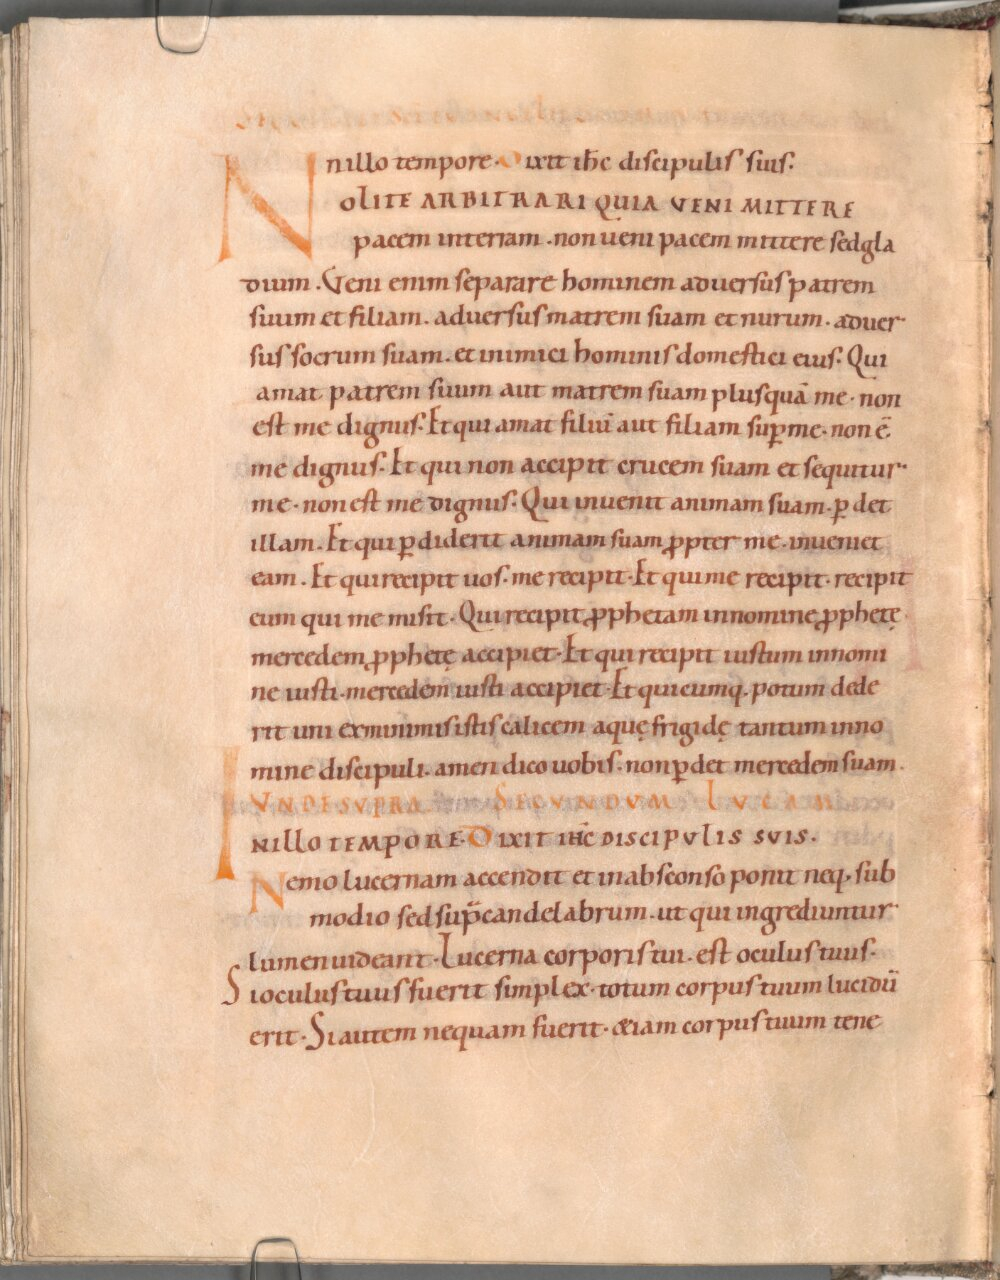 Nnillo tempore. Dixit ihc discipulis suis.
OLITE ARBITRARI QUIA VENI MITTERE
pacem interram. non ueni pacem mittere sedgla
dium. Veni enim separare hominem aduersus patrem
suum et filiam. aduersus matrem suam et nurum. aduer
sus socrum suam. et inimici hominis domestici eius. Qui
amat patrem suum aut matrem suam plusquā me. non
est me dignus. Et qui amat filiū aut filiam suꝑme. non ē
me dignus. Et qui non accipit crucem suam et sequitur
me. non est me dignus. Qui inuenit animam suam. ꝑdet
illam. Et qui ꝑdiderit animam suam ꝓpter me. inueniet
eam. Et qui recipit uos. me recipit. Et qui me recipit. recipit
eum qui me misit. Qui recipit ꝓphetam innomine ꝓphetę
mercedem ꝓphetę accipiet. Et qui recipit iustum innomi
ne iusti. mercedem iusti accipiet. Et quicumq. potum dede
rit uni exminimis istis calicem aquę frigidę tantum inno
mine discipuli. amen dico uobis. non ꝑdet mercedem suam.
UNDE SUPRA SECUNDUM LUCAM
INILLO TEMPORE. DIXIT IHC DISCIPULIS SUIS.
Nemo lucernam accendit et inabsconso ponit neq. sub
modio sed suꝑ candelabrum. ut qui ingrediuntur
lumen uideant. Lucerna corporis tui. est oculus tuus.
Si oculus tuus fuerit simplex. totum corpus tuum lucidū
erit. Si autem nequam fuerit. &iam corpus tuum tene